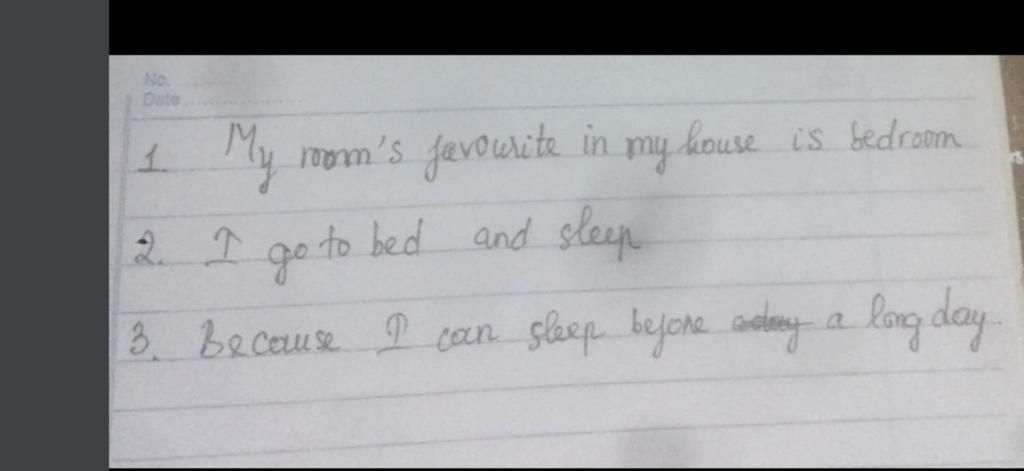 No.
Date
1. My room's favourite in my house is bedroom
2. I go to bed and sleep
3. Because I can sleep before a day a long day.